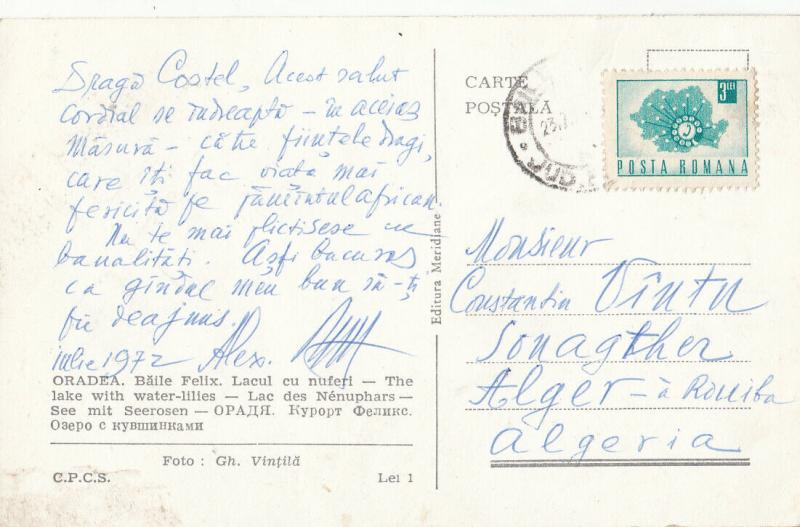 Dragă Costel, Acest salut
cordial se îndreaptă – în aceiaș
măsură – către ființele dragi,
care îți fac viața mai
fericită pe pămîntul african.
Nu te mai plictisesc cu
banalități. Aș fi bucuros
ca gîndul meu bun să-ți
fie deajuns.
iulie 1972 Alex.
ORADEA. Băile Felix. Lacul cu nuferi — The
lake with water-lilies — Lac des Nénuphars —
See mit Seerosen — ОРАДЯ. Курорт Феликс.
Озеро с кувшинками
Foto : Gh. Vințilă
C.P.C.S. Lei 1
Editura Meridiane
CARTE
POȘTALĂ
3 LEI
POSTA ROMANA
23.7
Monsieur
Constantin Vîntu
Sonagther
Alger – à Rouiba
Algeria